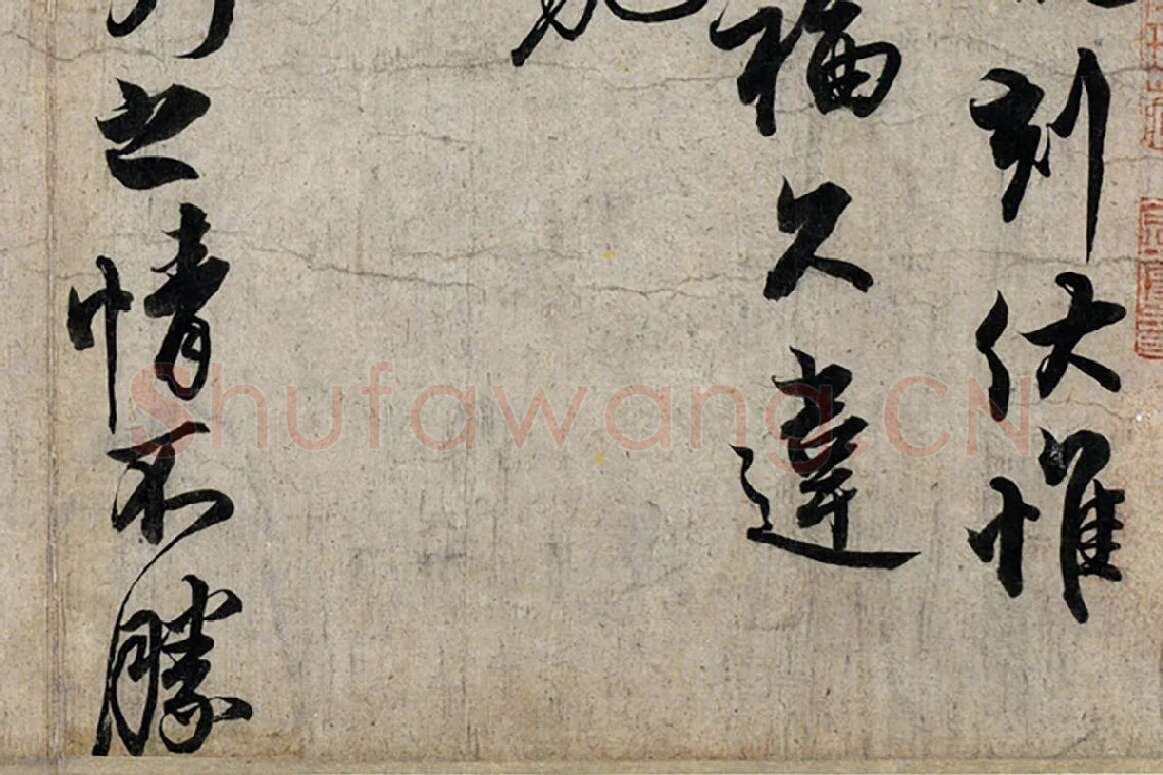 刻伏惟
福久違
之情不勝
Shufawang.CN